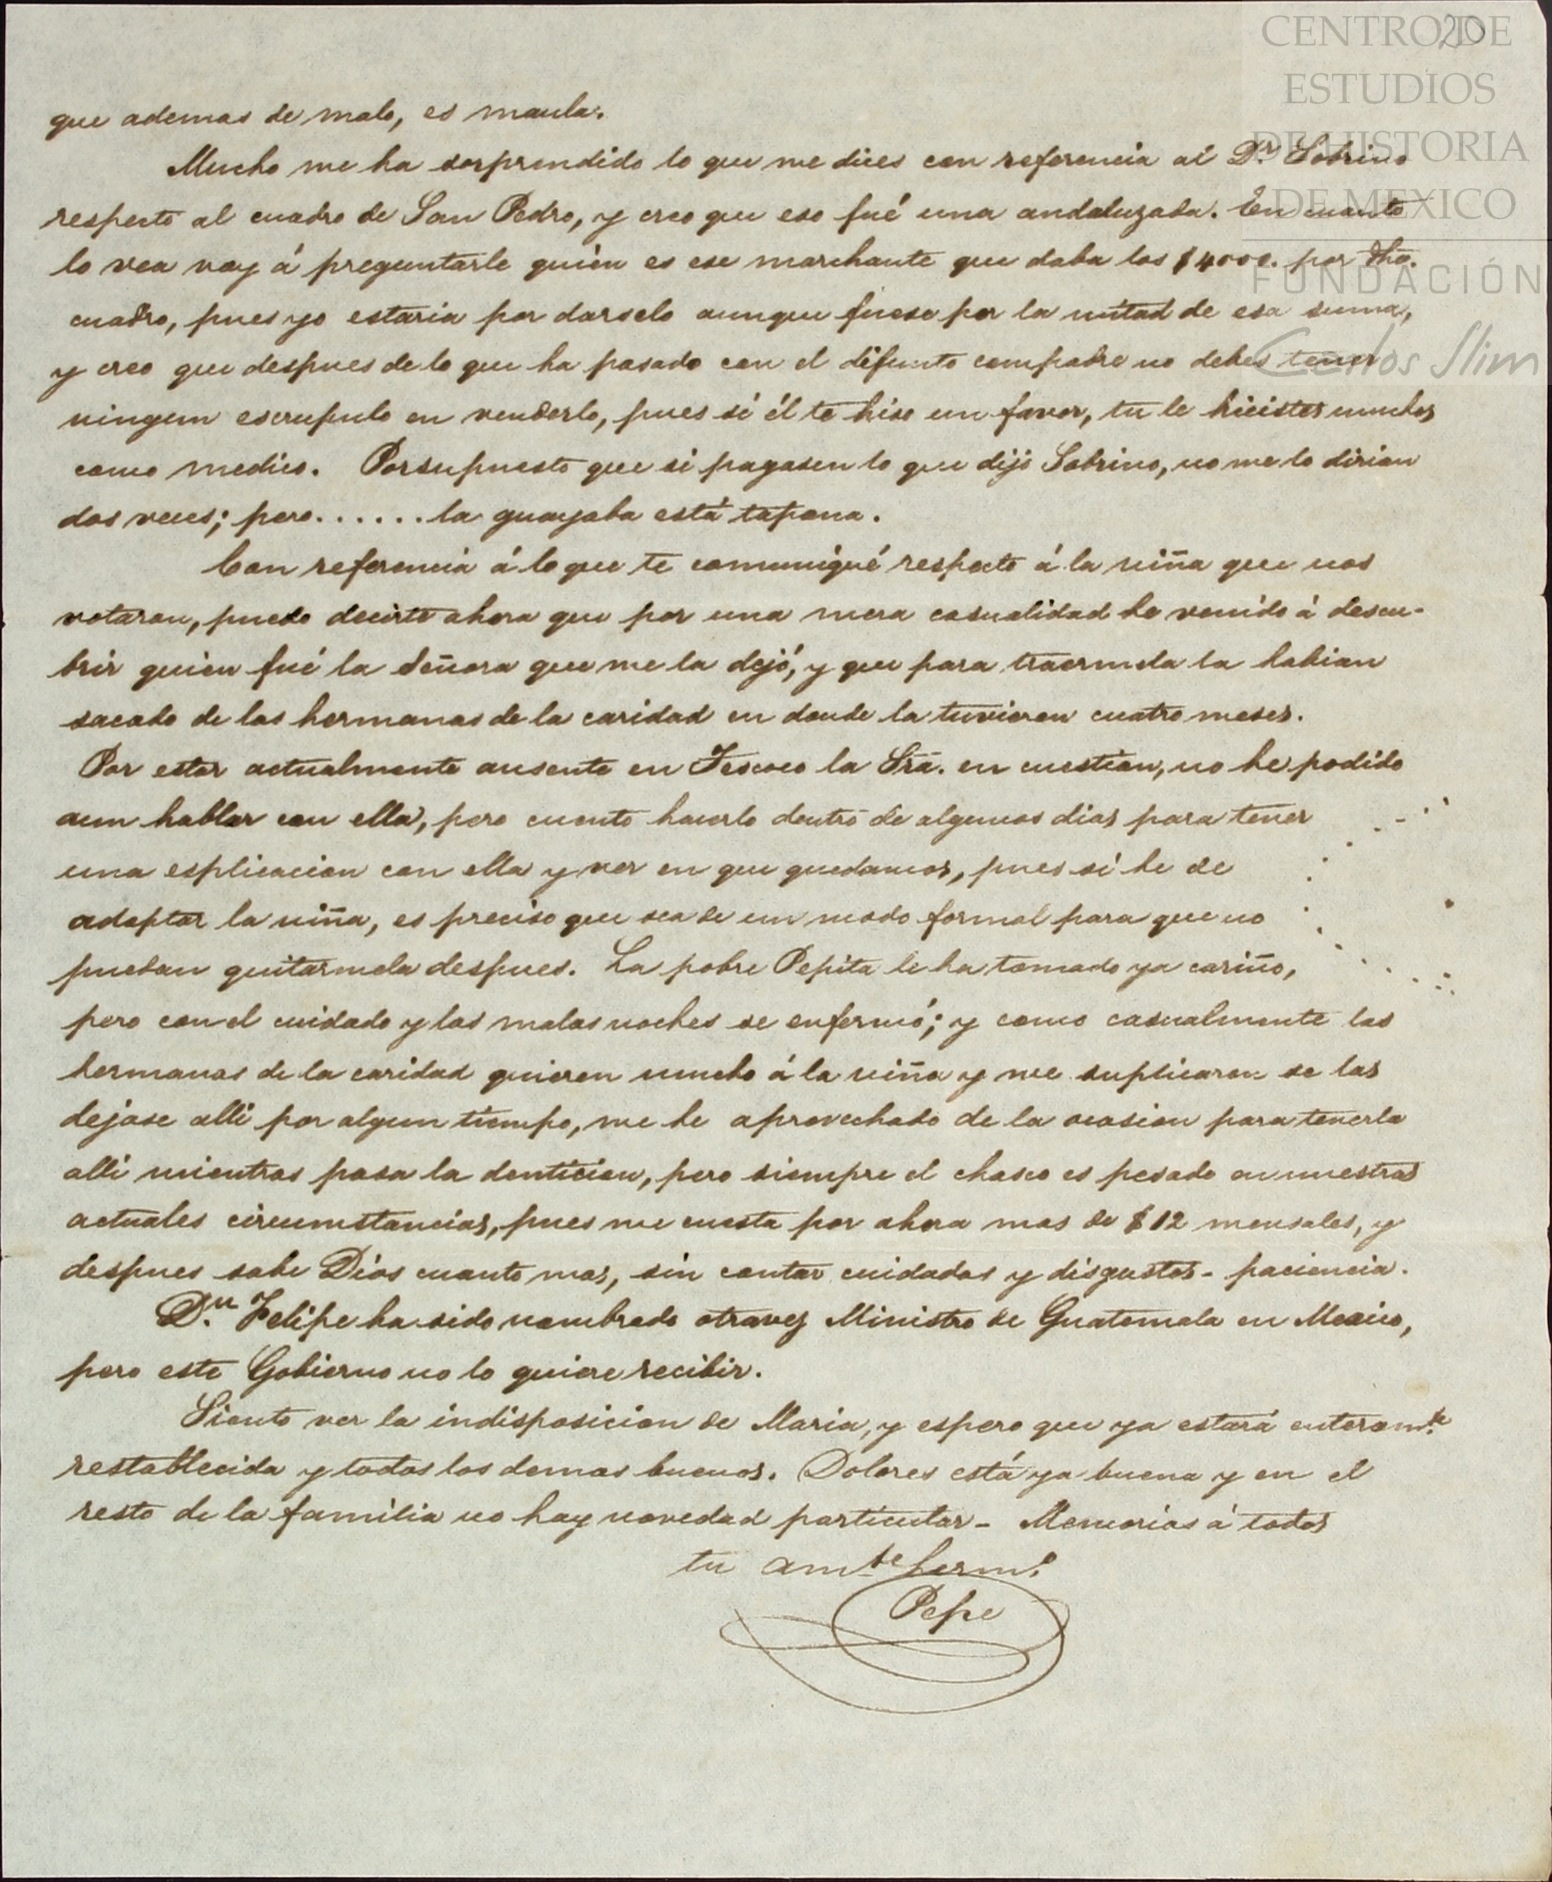 20
CENTRO DE
ESTUDIOS
DE HISTORIA
DE MEXICO
FUNDACIÓN
Carlos Slim
que ademas de malo, es maula.
Mucho me ha sorprendido lo que me dices con referencia al Dr. Sobrino
respecto al cuadro de San Pedro, y creo que eso fué una andaluzada. En cuanto
lo vea voy á preguntarle quien es ese marchante que daba los $4000. por dho.
cuadro, pues yo estaria por darselo aunque fuese por la mitad de esa suma,
y creo que despues de lo que ha pasado con el difunto compadre no debes tener
ningun escrupulo en venderlo, pues sí él te hiso un favor, tu le hicistes muchos
como medico. Porsupuesto que si pagasen lo que dijo Sobrino, no me lo dirian
dos veces; pero......la guayaba está tapona.
Con referencia á lo que te comuniqué respecto á la niña que nos
votaron, puedo decirte ahora que por una mera casualidad he venido á descu-
brir quien fué la Señora que me la dejó, y que para traermela la habian
sacado de las hermanas de la caridad en donde la tuvieron cuatro meses.
Por estar actualmente ausente en Tescoco la Sra. en cuestion, no he podido
aun hablar con ella, pero cuento hacerlo dentro de algunos dias para tener
una esplicacion con ella y ver en que quedamos, pues sí he de
adoptar la niña, es preciso que sea de un modo formal para que no
puedan quitarmela despues. La pobre Pepita le ha tomado ya cariño,
pero con el cuidado y las malas noches se enfermó; y como casualmente las
hermanas de la caridad quieren mucho á la niña y me suplicaron se las
dejase alli por algun tiempo, me he aprovechado de la ocasion para tenerla
alli mientras pasa la denticion, pero siempre el chasco es pesado en nuestras
actuales circumstancias, pues me cuesta por ahora mas de $12 mensales, y
despues sabe Dios cuanto mas, sin contar cuidados y disgustos - paciencia.
Dn. Felipe ha sido nombrado otravez Ministro de Guatemala en Mexico,
pero este Gobierno no lo quiere recibir.
Siento ver la indisposicion de Maria, y espero que ya estará enteramte.
restablecida y todos los demas buenos. Dolores está ya buena y en el
resto de la familia no hay novedad particular - Memorias á todos
tu amte. hermo.
Pepe